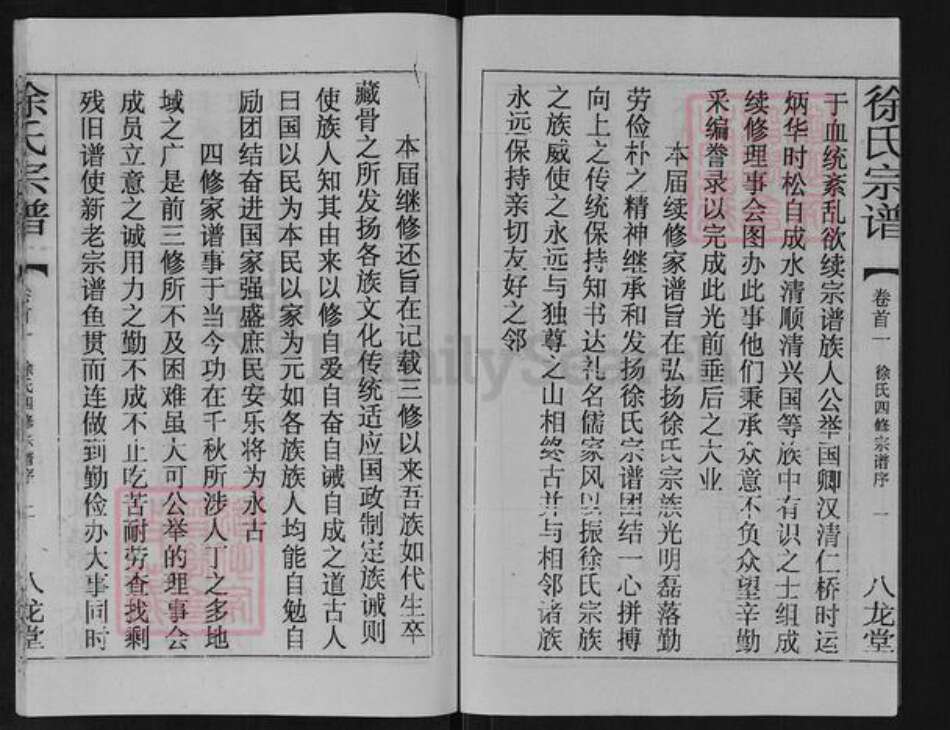 徐氏宗谱
卷首一 徐氏四修宗谱序 一 八龙堂
于血统紊乱欲续宗谱族人公举国卿汉清仁桥时运
炳华时松自成水清顺清兴国等族中有识之士组成
续修理事会图办此事他们秉承众意不负众望辛勤
采编誊录以完成此光前垂后之大业
本届续修家谱旨在弘扬徐氏宗族光明磊落勤
劳俭朴之精神继承和发扬徐氏宗谱团结一心拼搏
向上之传统保持知书达礼名儒家风以振徐氏宗族
之族威使之永远与独尊之山相终古并与相邻诸族
永远保持亲切友好之邻
本届继修还旨在记载三修以来吾族如代生卒
藏骨之所发扬各族文化传统适应国政制定族诫则
使族人知其由来以修自爱自奋自诫自成之道古人
曰国以民为本民以家为元如各族族人均能自勉自
励团结奋进国家强盛庶民安乐将为永古
四修家谱事于当今功在千秋所涉人丁之多地
域之广是前三修所不及困难虽大可公举的理事会
成员立意之诚用力之勤不成不止吃苦耐劳查找剩
残旧谱使新老宗谱鱼贯而连做到勤俭办大事同时
徐氏宗谱
徐氏四修宗谱序 二 八龙堂
FamilySearch